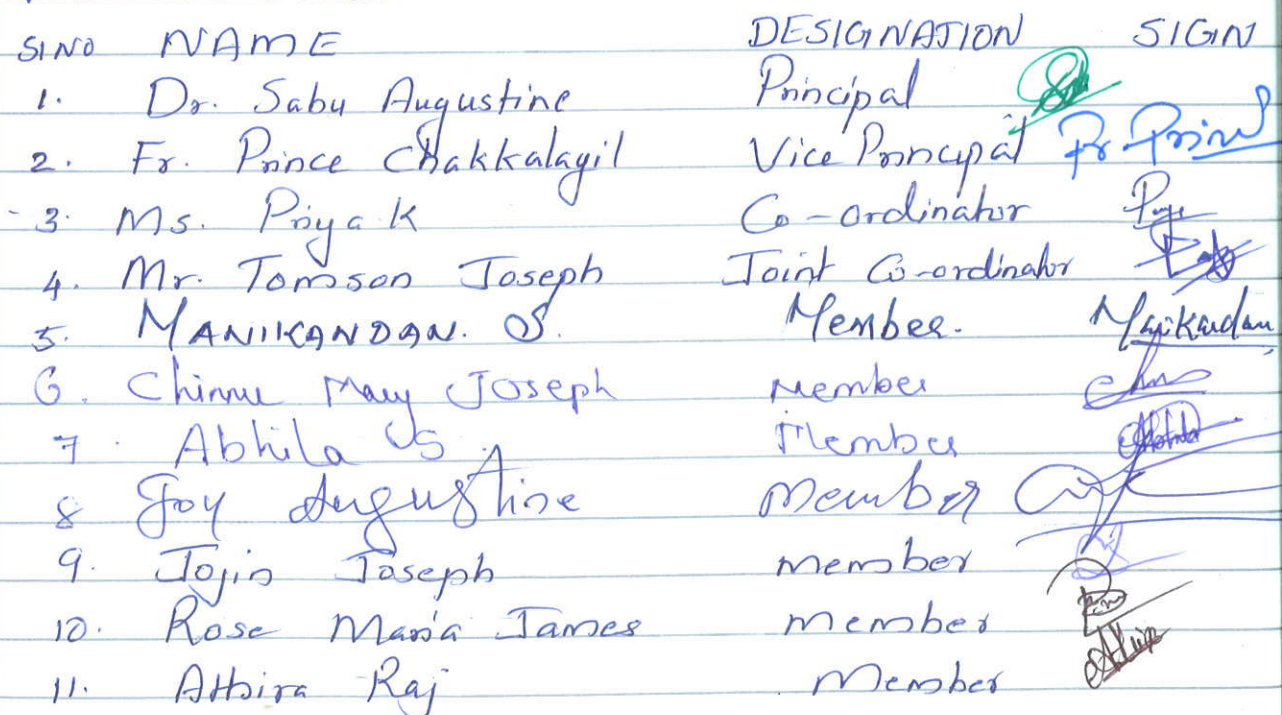 SI NO NAME DESIGNATION SIGN
1. Dr. Sabu Augustine Principal
2. Fr. Prince Chakkalayil Vice Principal Fr. Prince
3. Ms. Priya K Co-ordinator Priya
4. Mr. Tomson Joseph Joint Co-ordinator
5. MANIKANDAN. S. Member. Manikandan
6. Chinnu Mary Joseph Member
7. Abhila S Member
8 Joy Augustine Member
9. Jojin Joseph Member
10. Rose Maria James Member
11. Athira Raj Member